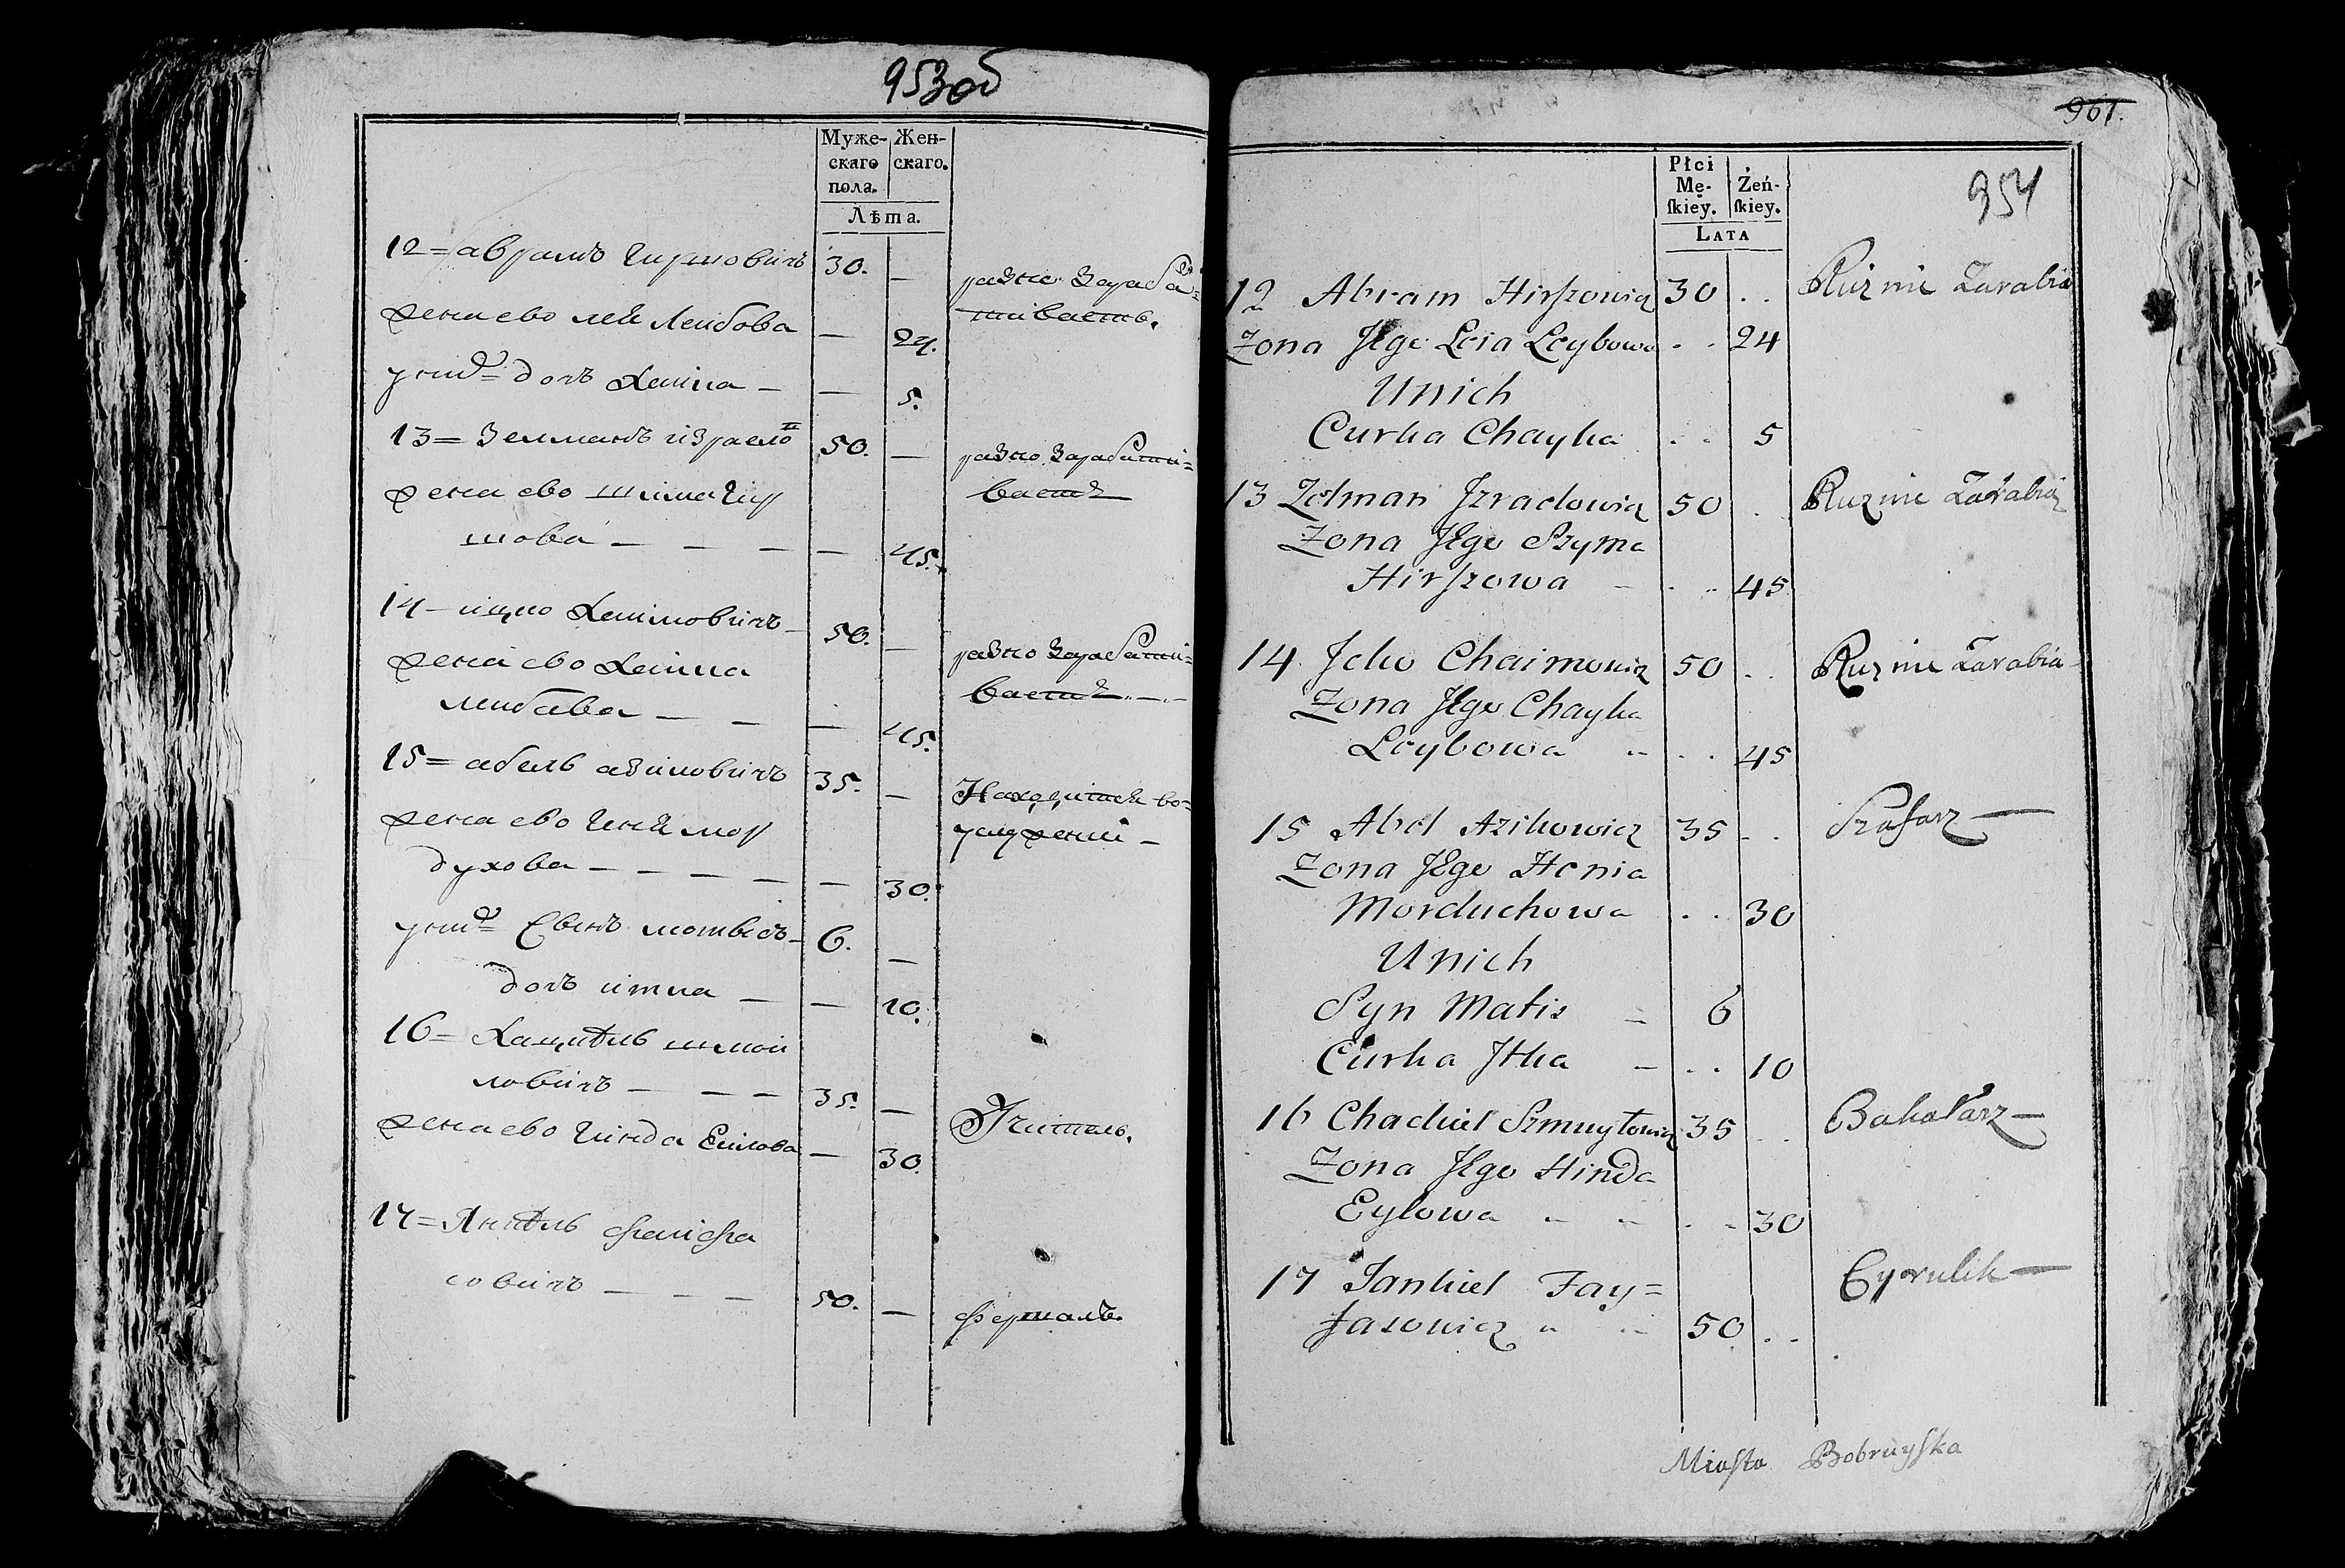 953об
Муже-скаго пола. Жен-скаго.
Лѣта.
12= абрамъ гиршовичъ 30. — разно зараба=
тиваетъ.
жена ево лея лейбова — 24.
у них дочъ хайка — — 5.
13= Зелманъ израело 50. — разно заработи=
ваетъ
жена ево шима гир
шова — — — — 45.
14— ицко хаимовичъ 50. — разно заработи=
ваетъ
жена ево хайка
лейбава — — — 45.
15= абель азиковичъ 35. — Находитса во=
услужении —
жена ево геня мор
духова — — — — — 30.
у них Сынъ мотысъ 6. —
дочъ итка — — 10.
16= Хацкель шмой
ловичъ — — — 35. — Учитель.
жена ево гинда Ейлова — 30.
17= Янкель файфа
совичъ — — — 50. — фершалъ.
967.
954
Płci Mę-ſkiey. Żeń-ſkiey.
LATA
12 Abram Hirſzowicz 30 . . Rużnie Zarabia
Zona Jego Leia Leybowa . . 24
Unich
Curka Chayka . . 5
13 Zelman Jzraelowicz 50 . Rużnie Zarabia
Zona Jego Szyma
Hirſzowa — . . 45
14 Jcko Chaimowicz 50 . . Rużnie Zarabia
Zona Jego Chayka
Leybowa . . 45
15 Abel Azikowicz 35 . . Szafarz —
Zona Jego Henia
Morduchowa . . 30
Unich
Syn Matis — 6
Curka Jtka — . . 10
16 Chackiel Szmuyłowicz 35 . . Bakałarz —
Zona Jego Hinda
Eylowa . . 30
17 Jankiel Fay=
faſowicz 50 . . Cyrulik —
Miaſta Bobruyſka